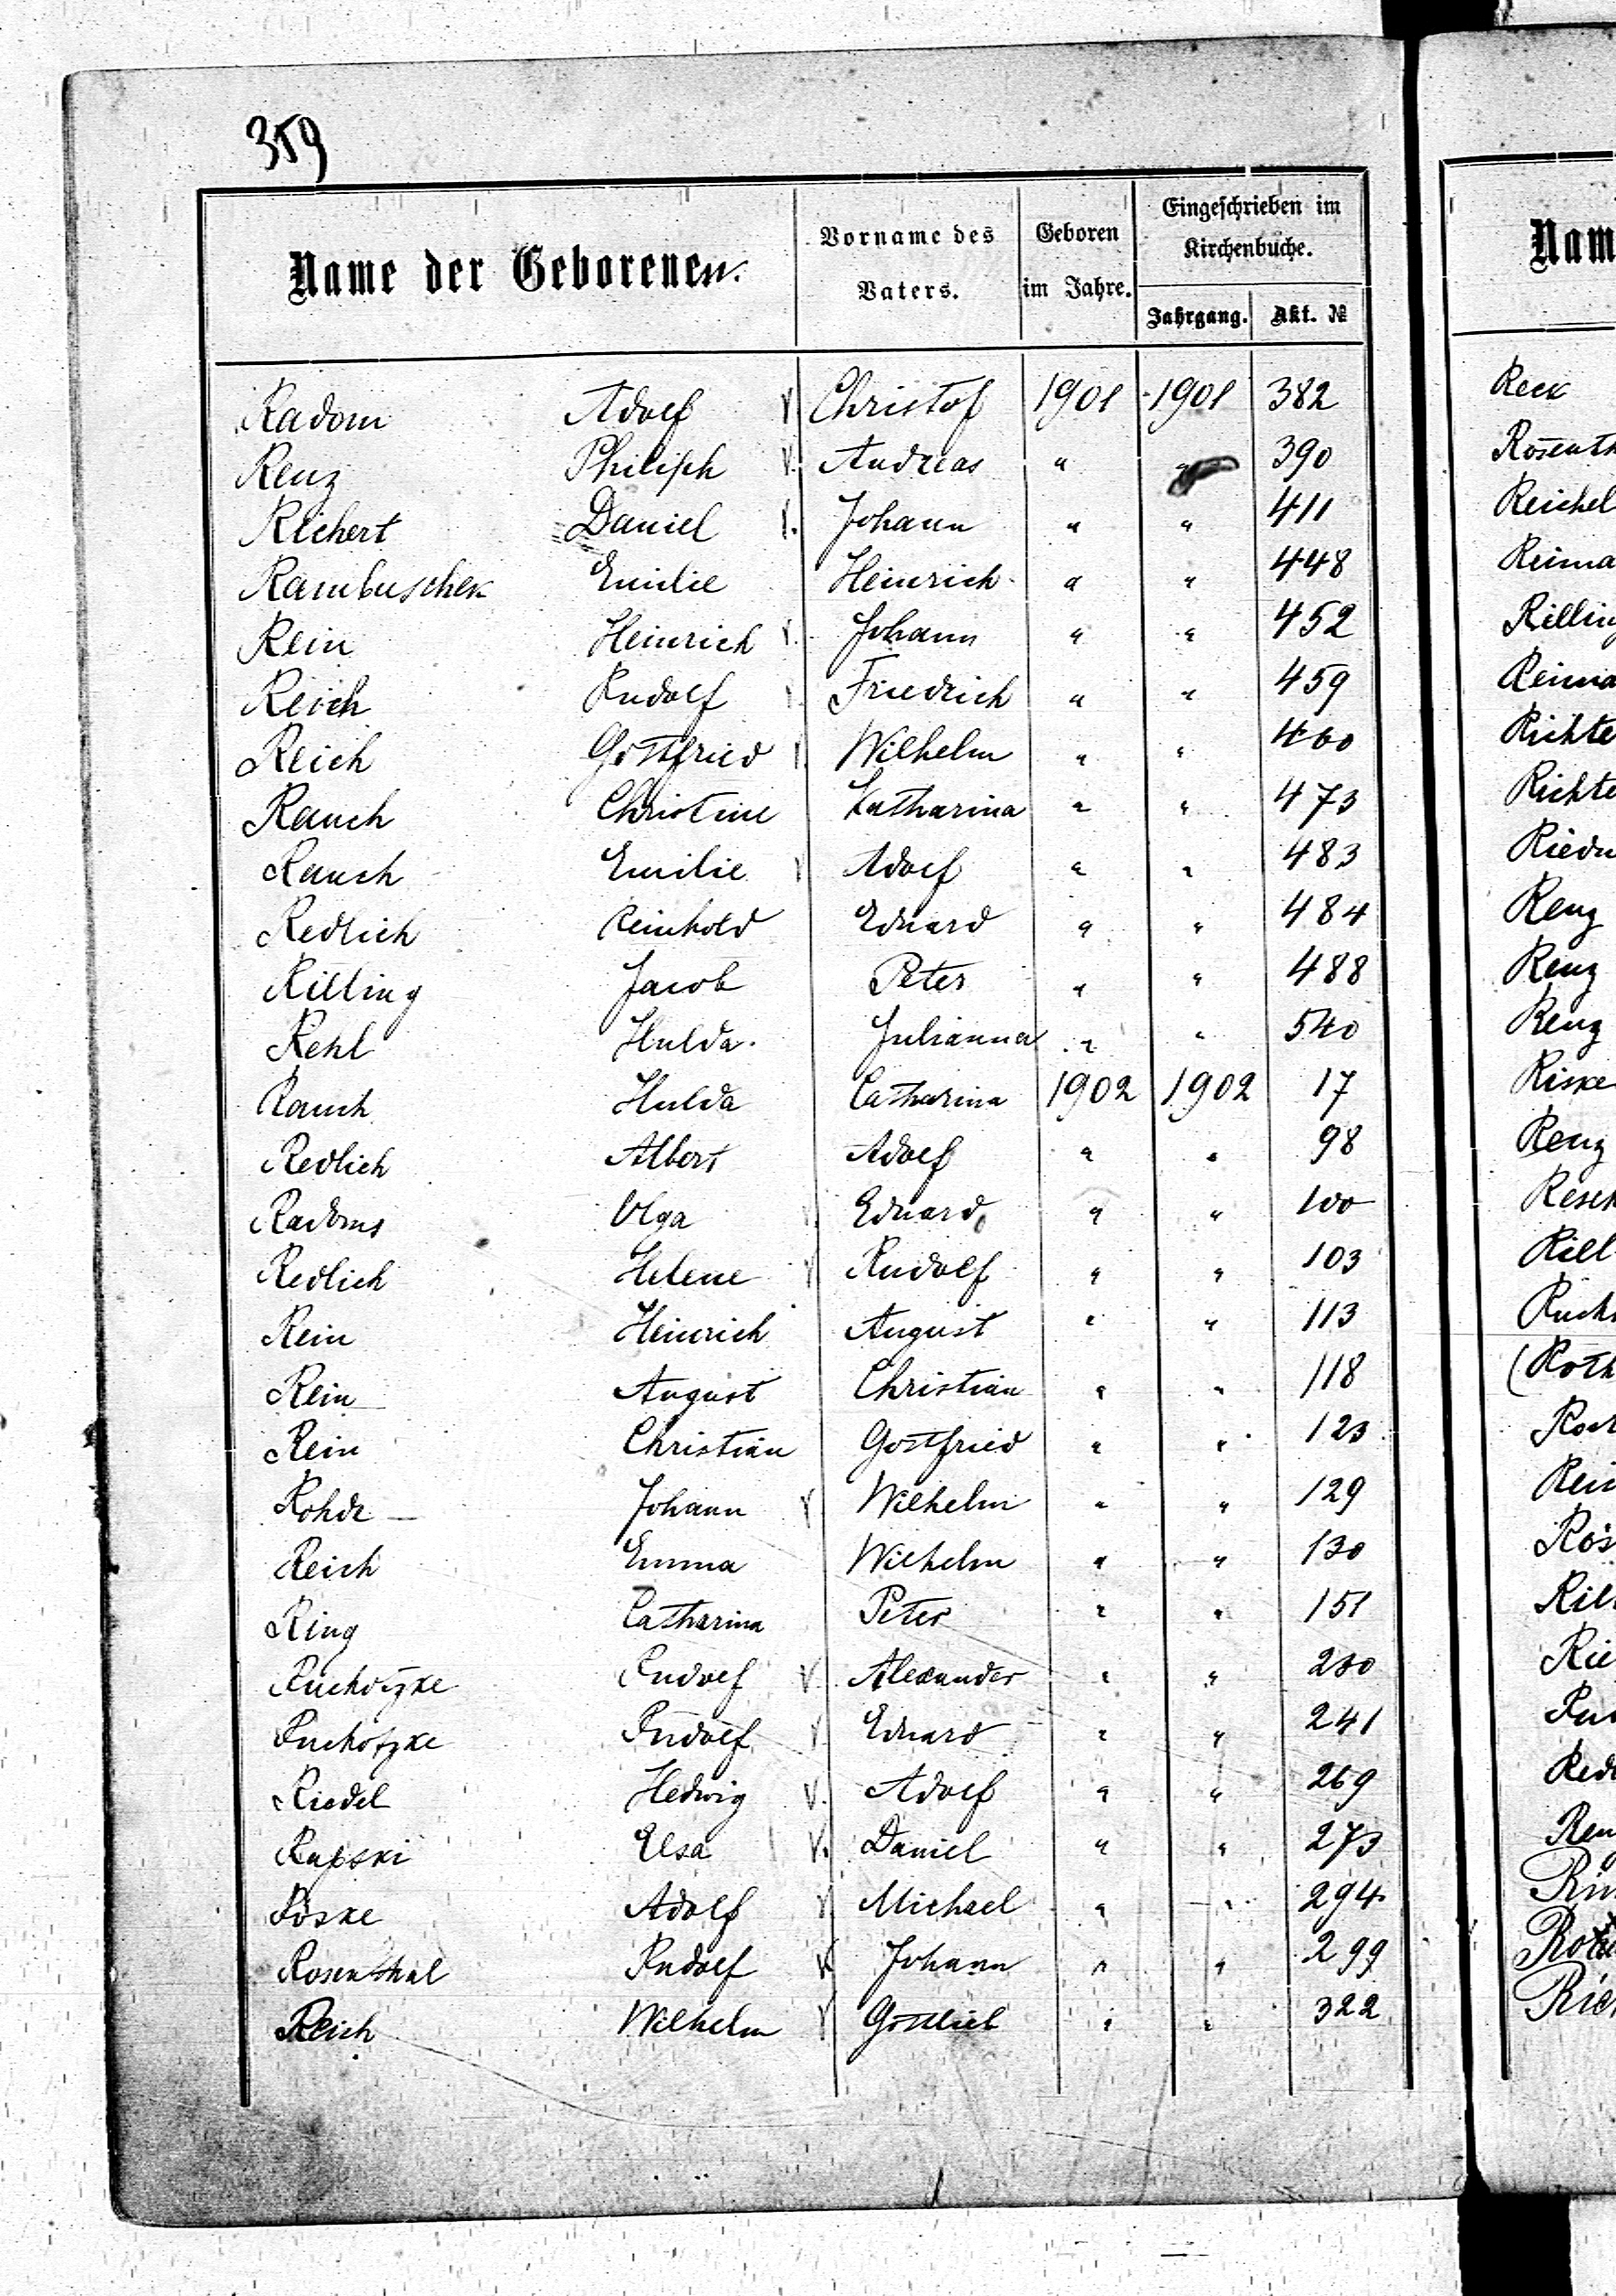 359
Name der Geborenen. Vorname des Vaters. Geboren im Jahre. Eingeschrieben im Kirchenbuche. Jahrgang. Akt. №
Radom Adolf V Christof 1901 1901 382
Renz Philiph V. Andreas " " 390
Richert Daniel V. Johann " " 411
Rambuschek Emilie Heinrich " " 448
Rein Heinrich V. Johann " " 452
Reich Rudolf Friedrich " " 459
Reich Gottfried V. Wilhelm " " 460
Rauch Christine Katharina " " 473
Rauch Emilie V Adolf " " 483
Redlich Reinhold Eduard " " 484
Rilling Jacob Peter " " 488
Rehl Hulda. Julianna " " 540
Rauch Hulda Catharina 1902 1902 17
Redlich Albert Adolf " " 98
Radoms Olga Eduard " " 100
Redlich Helene V Rudolf " " 103
Rein Heinrich August " " 113
Rein August Christian " " 118
Rein Christian Gottfried " " 123
Rohde Johann V Wilhelm " " 129
Reich Emma Wilhelm " " 130
Ring Catharina Peter " " 151
Rudolf V. Alexander " "
Rudolf V Eduard " " 241
Riedel Hedwig V. Adolf " " 269
Rupski Elsa V. Daniel " " 273
Röske Adolf V Michael " " 294
Rosenthal Rudolf V Johann " " 299
Reich Wilhelm V Gottlieb " " 322
Nam
Reck
Rosenth
Reichel
Reima
Rilling
Reima
Richte
Richte
Renz
Renz
Renz
Renz
Rill
(Roth